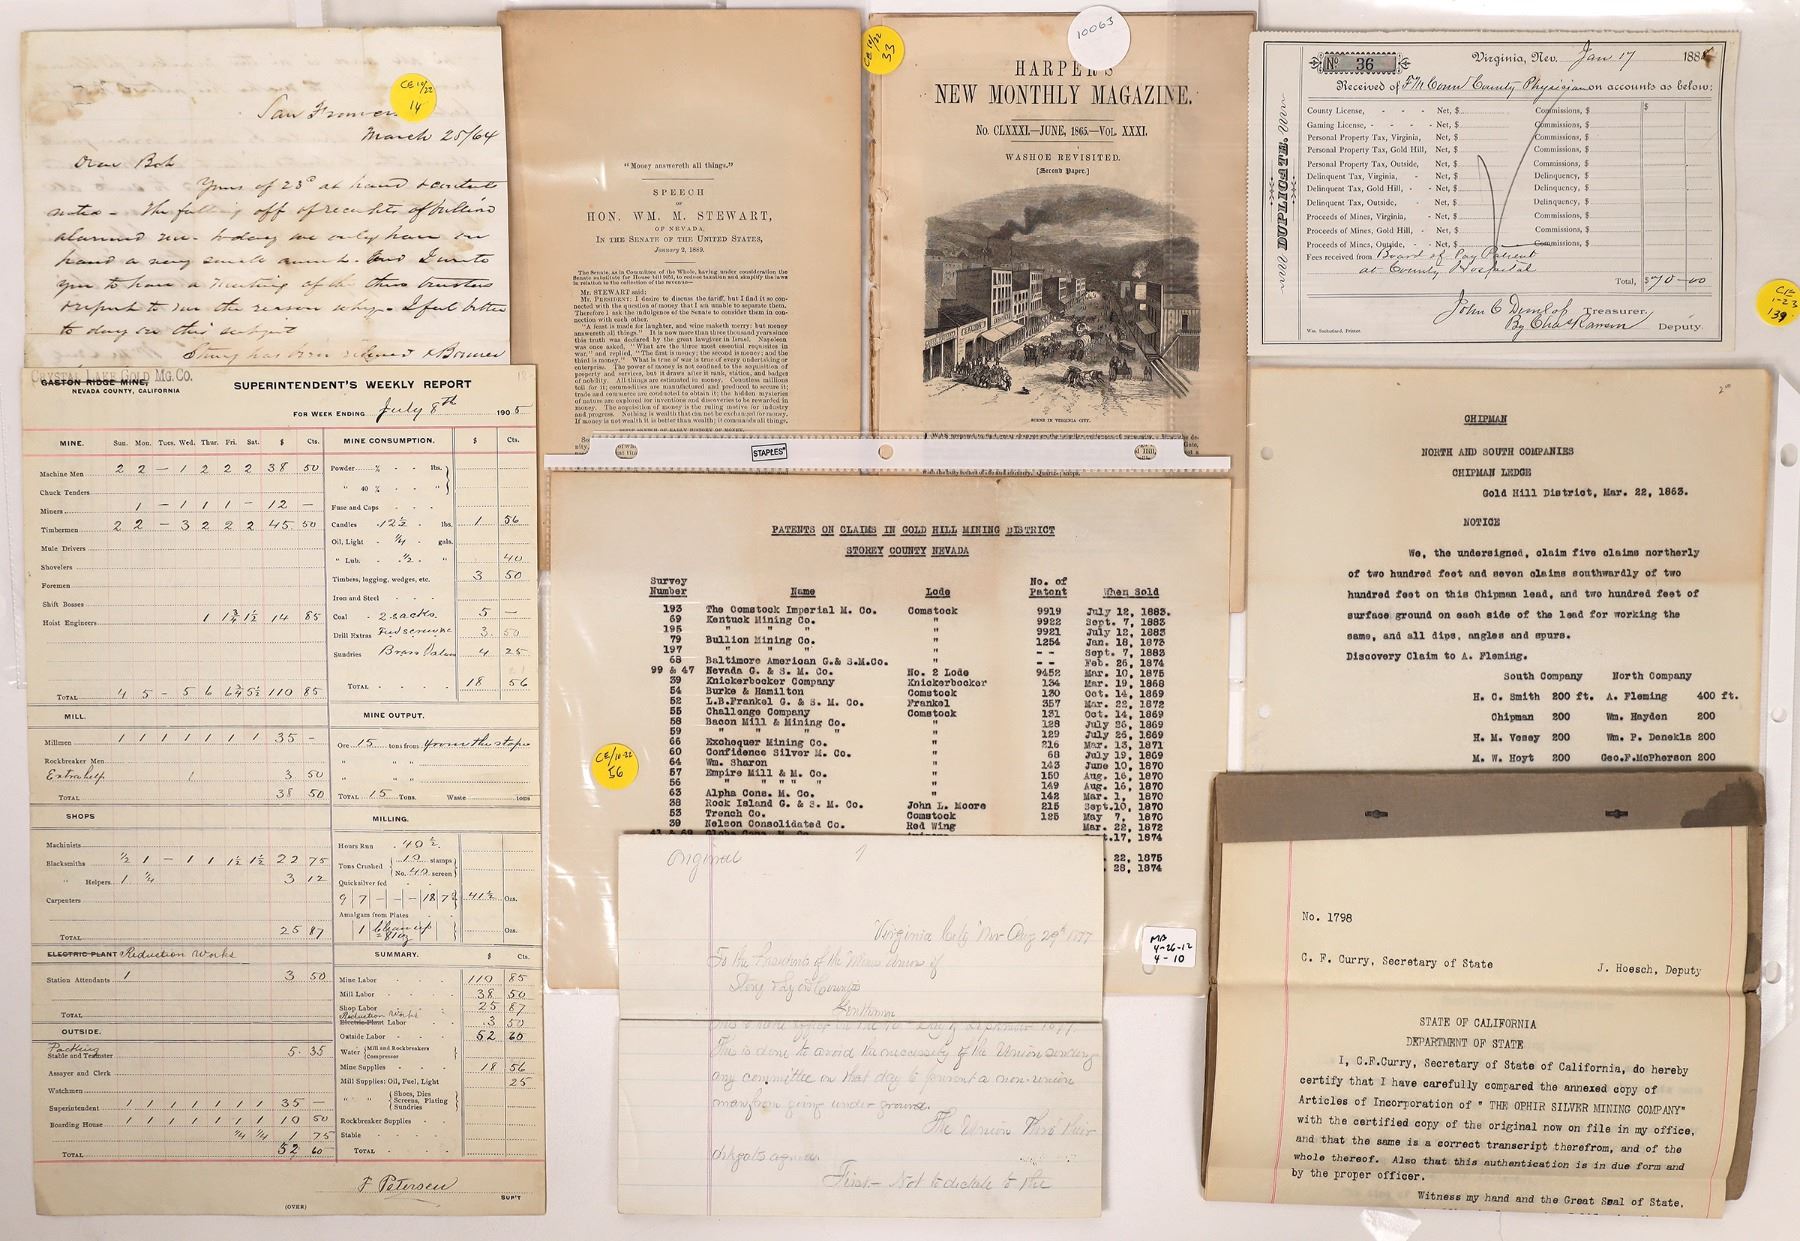 CE 10/22
14
San Francisco
March 25/64
Dear Bob
Yours of 23d at hand & contents
noted - The falling off of receipts of bullion
alarmed me. today we only have on
hand a very small amount. And I wrote
you to have a meeting of the three trustees
& report to me the reason why. I feel better
to day on this subject
has been relieved & Bonner
"Money answereth all things."
SPEECH
OF
HON. WM. M. STEWART,
OF NEVADA,
IN THE SENATE OF THE UNITED STATES,
January 2, 1889.
The Senate, as in Committee of the Whole, having under consideration the
Senate substitute for House bill 9051, to reduce taxation and simplify the laws
in relation to the collection of the revenue—
Mr. STEWART said:
Mr. PRESIDENT: I desire to discuss the tariff, but I find it so con-
nected with the question of money that I am unable to separate them.
Therefore I ask the indulgence of the Senate to consider them in con-
nection with each other.
"A feast is made for laughter, and wine maketh merry: but money
answereth all things." It is now more than three thousand years since
this truth was declared by the great lawgiver in Israel. Napoleon
was once asked, "What are the three most essential requisites in
war," and replied, "The first is money; the second is money; and the
third is money." What is true of war is true of every undertaking or
enterprise. The power of money is not confined to the acquisition of
property and services, but it draws after it rank, station, and badges
of nobility. All things are estimated in money. Countless millions
toil for it; commodities are manufactured and produced to secure it;
trade and commerce are conducted to obtain it; the hidden mysteries
of nature are explored for inventions and discoveries to be rewarded in
money. The acquisition of money is the ruling motive for industry
and progress. Nothing is wealth that can not be exchanged for money.
If money is not wealth it is better than wealth; it commands all things.
CE 10/22
33
10063
HARPER'S
NEW MONTHLY MAGAZINE.
No. CLXXXI.—JUNE, 1865.—VOL. XXXI.
WASHOE REVISITED.
[Second Paper.]
SCENE IN VIRGINIA CITY.
STAPLES
DUPLICATE.
No 36
Virginia, Nev. Jan 17 188
Received of F M Conn County Physician on accounts as below:
County License, - - - Net, $ Commissions, $ $
Gaming License, - - - Net, $ Commissions, $
Personal Property Tax, Virginia, Net, $ Commissions, $
Personal Property Tax, Gold Hill, Net, $ Commissions, $
Personal Property Tax, Outside, Net, $ Commissions, $
Delinquent Tax, Virginia, - Net, $ Delinquency, $
Delinquent Tax, Gold Hill, - Net, $ Delinquency, $
Delinquent Tax, Outside, - Net, $ Delinquency, $
Proceeds of Mines, Virginia, - Net, $ Commissions, $
Proceeds of Mines, Gold Hill, - Net, $ Commissions, $
Proceeds of Mines, Outside, - Net, $ Commissions, $
Fees received from Board of Pay Patient
at County Hospital
Total, $70-00
John C Dunlop Treasurer.
By Chas Rawson Deputy.
Wm. Sutherland, Printer.
CB
1-23
139
CRYSTAL LAKE GOLD MG. CO.
GASTON RIDGE MINE,
NEVADA COUNTY, CALIFORNIA
SUPERINTENDENT'S WEEKLY REPORT
FOR WEEK ENDING July 8th 1905
MINE. Sun. Mon. Tues. Wed. Thur. Fri. Sat. $ Cts.
Machine Men 2 2 - 1 2 2 2 38 50
Chuck Tenders
Miners 1 - 1 1 1 - 12 -
Timbermen 2 2 - 3 2 2 2 45 50
Mule Drivers
Shovelers
Foremen
Shift Bosses
Hoist Engineers 1 1 3/4 1 1/2 14 85
TOTAL 4 5 - 5 6 6 3/4 5 1/2 110 85
MILL.
Millmen 1 1 1 1 1 1 1 35 -
Rockbreaker Men
Extra help 1 3 50
TOTAL 38 50
SHOPS
Machinists
Blacksmiths 1/2 1 - 1 1 1 1/2 1 1/2 22 75
" Helpers 1 1/4 3 12
Carpenters
TOTAL 25 87
ELECTRIC PLANT Reduction Works
Station Attendants 1 3 50
TOTAL
OUTSIDE.
Packing
Stable and Teamster 5.35
Assayer and Clerk
Watchmen
Superintendent 1 1 1 1 1 1 1 35 -
Boarding House 1 1 1 1 1 1 1 10 50
1/4 1/4 1 75
TOTAL 52 60
MINE CONSUMPTION. $ Cts.
Powder % lbs.
" 40 % "
Fuse and Caps
Candles 12 1/2 lbs. 1 56
Oil, Light 1/4 gals.
" Lub. 1/2 " 40
Timbers, lagging, wedges, etc. 3 50
Iron and Steel
Coal 2 sacks 5 -
Drill Extras Feed screw nut 3. 50
Sundries Brass Valves 4 25
TOTAL 18 56
MINE OUTPUT.
Ore 15 tons from from the stope
" " "
" " "
TOTAL 15 Tons. Waste tons
MILLING.
Hours Run 40 1/2
Tons Crushed 10 stamps
No. 40 screen
Quicksilver fed
9 | 7 | - | - | 18 | 7 1/2 41 1/2 Ozs.
Amalgam from Plates
1 Clean up Ozs.
SUMMARY. $ Cts.
Mine Labor 110 85
Mill Labor 38 50
Shop Labor 25 87
Reduction Works
Electric Plant Labor 3 50
Outside Labor 52 60
Water Mill and Rockbreakers
Compressor
Mine Supplies 18 56
Mill Supplies: Oil, Fuel, Light 25
" " Shoes, Dies
Screens, Plating
Sundries
Rockbreaker Supplies
Stable
TOTAL
F Petersen
SUP'T
(OVER)
PATENTS ON CLAIMS IN GOLD HILL MINING DISTRICT
STOREY COUNTY NEVADA
Survey Number Name Lode No. of Patent When Sold
193 The Comstock Imperial M. Co. Comstock 9919 July 12, 1883.
69 Kentuck Mining Co. " 9922 Sept. 7, 1883
195 " " " 9921 July 12, 1883
79 Bullion Mining Co. " 1254 Jan. 18, 1873
197 " " " " -- Sept. 7, 1883
68 Baltimore American G.& S.M.Co. " -- Feb. 26, 1874
99 & 47 Nevada G. & S. M. Co. No. 2 Lode 9452 Mar. 10, 1875
39 Knickerbocker Company Knickerbocker 134 Mar. 19, 1868
54 Burke & Hamilton Comstock 130 Oct. 14, 1869
52 L.B.Frankel G. & S. M. Co. Frankel 357 Mar. 22, 1872
55 Challenge Company Comstock 131 Oct. 14, 1869
58 Bacon Mill & Mining Co. " 128 July 26, 1869
59 " " " " " 129 July 26, 1869
66 Exchequer Mining Co. " 216 Mar. 13, 1871
60 Confidence Silver M. Co. " 68 July 19, 1869
64 Wm. Sharon " 143 June 10, 1870
57 Empire Mill & M. Co. " 150 Aug. 16, 1870
56 " " " " " 149 Aug. 16, 1870
63 Alpha Cons. M. Co. " 142 Mar. 1, 1870
38 Rock Island G. & S. M. Co. John L. Moore 215 Sept.10, 1870
53 Trench Co. Comstock 125 May 7, 1870
39 Nelson Consolidated Co. Red Wing Mar. 22, 1872
pt.17, 1874
22, 1875
28, 1874
CE/10-22
56
MB
4-26-12
4-10
Original 1
Virginia City Nev Aug 29th 1877
To the Presidents of the Miners Union of
Story & Lyon Counties
Gentlemen
This is done to avoid the necessity of the Union sending
any committee on that day to prevent a non-union
man from going under ground.
The Union thro' their
delegates agrees.
First - Not to dictate to the
CHIPMAN
NORTH AND SOUTH COMPANIES
CHIPMAN LEDGE
Gold Hill District, Mar. 22, 1863.
NOTICE
We, the undersigned, claim five claims northerly
of two hundred feet and seven claims southwardly of two
hundred feet on this Chipman lead, and two hundred feet of
surface ground on each side of the lead for working the
same, and all dips, angles and spurs.
Discovery Claim to A. Fleming.
South Company North Company
H. C. Smith 200 ft. A. Fleming 400 ft.
Chipman 200 Wm. Hayden 200
H. M. Vesey 200 Wm. P. Denekla 200
M. W. Hoyt 200 Geo.F.McPherson 200
No. 1798
C. F. Curry, Secretary of State J. Hoesch, Deputy
STATE OF CALIFORNIA
DEPARTMENT OF STATE
I, C.F.Curry, Secretary of State of California, do hereby
certify that I have carefully compared the annexed copy of
Articles of Incorporation of " THE OPHIR SILVER MINING COMPANY"
with the certified copy of the original now on file in my office,
and that the same is a correct transcript therefrom, and of the
whole thereof. Also that this authentication is in due form and
by the proper officer.
Witness my hand and the Great Seal of State,